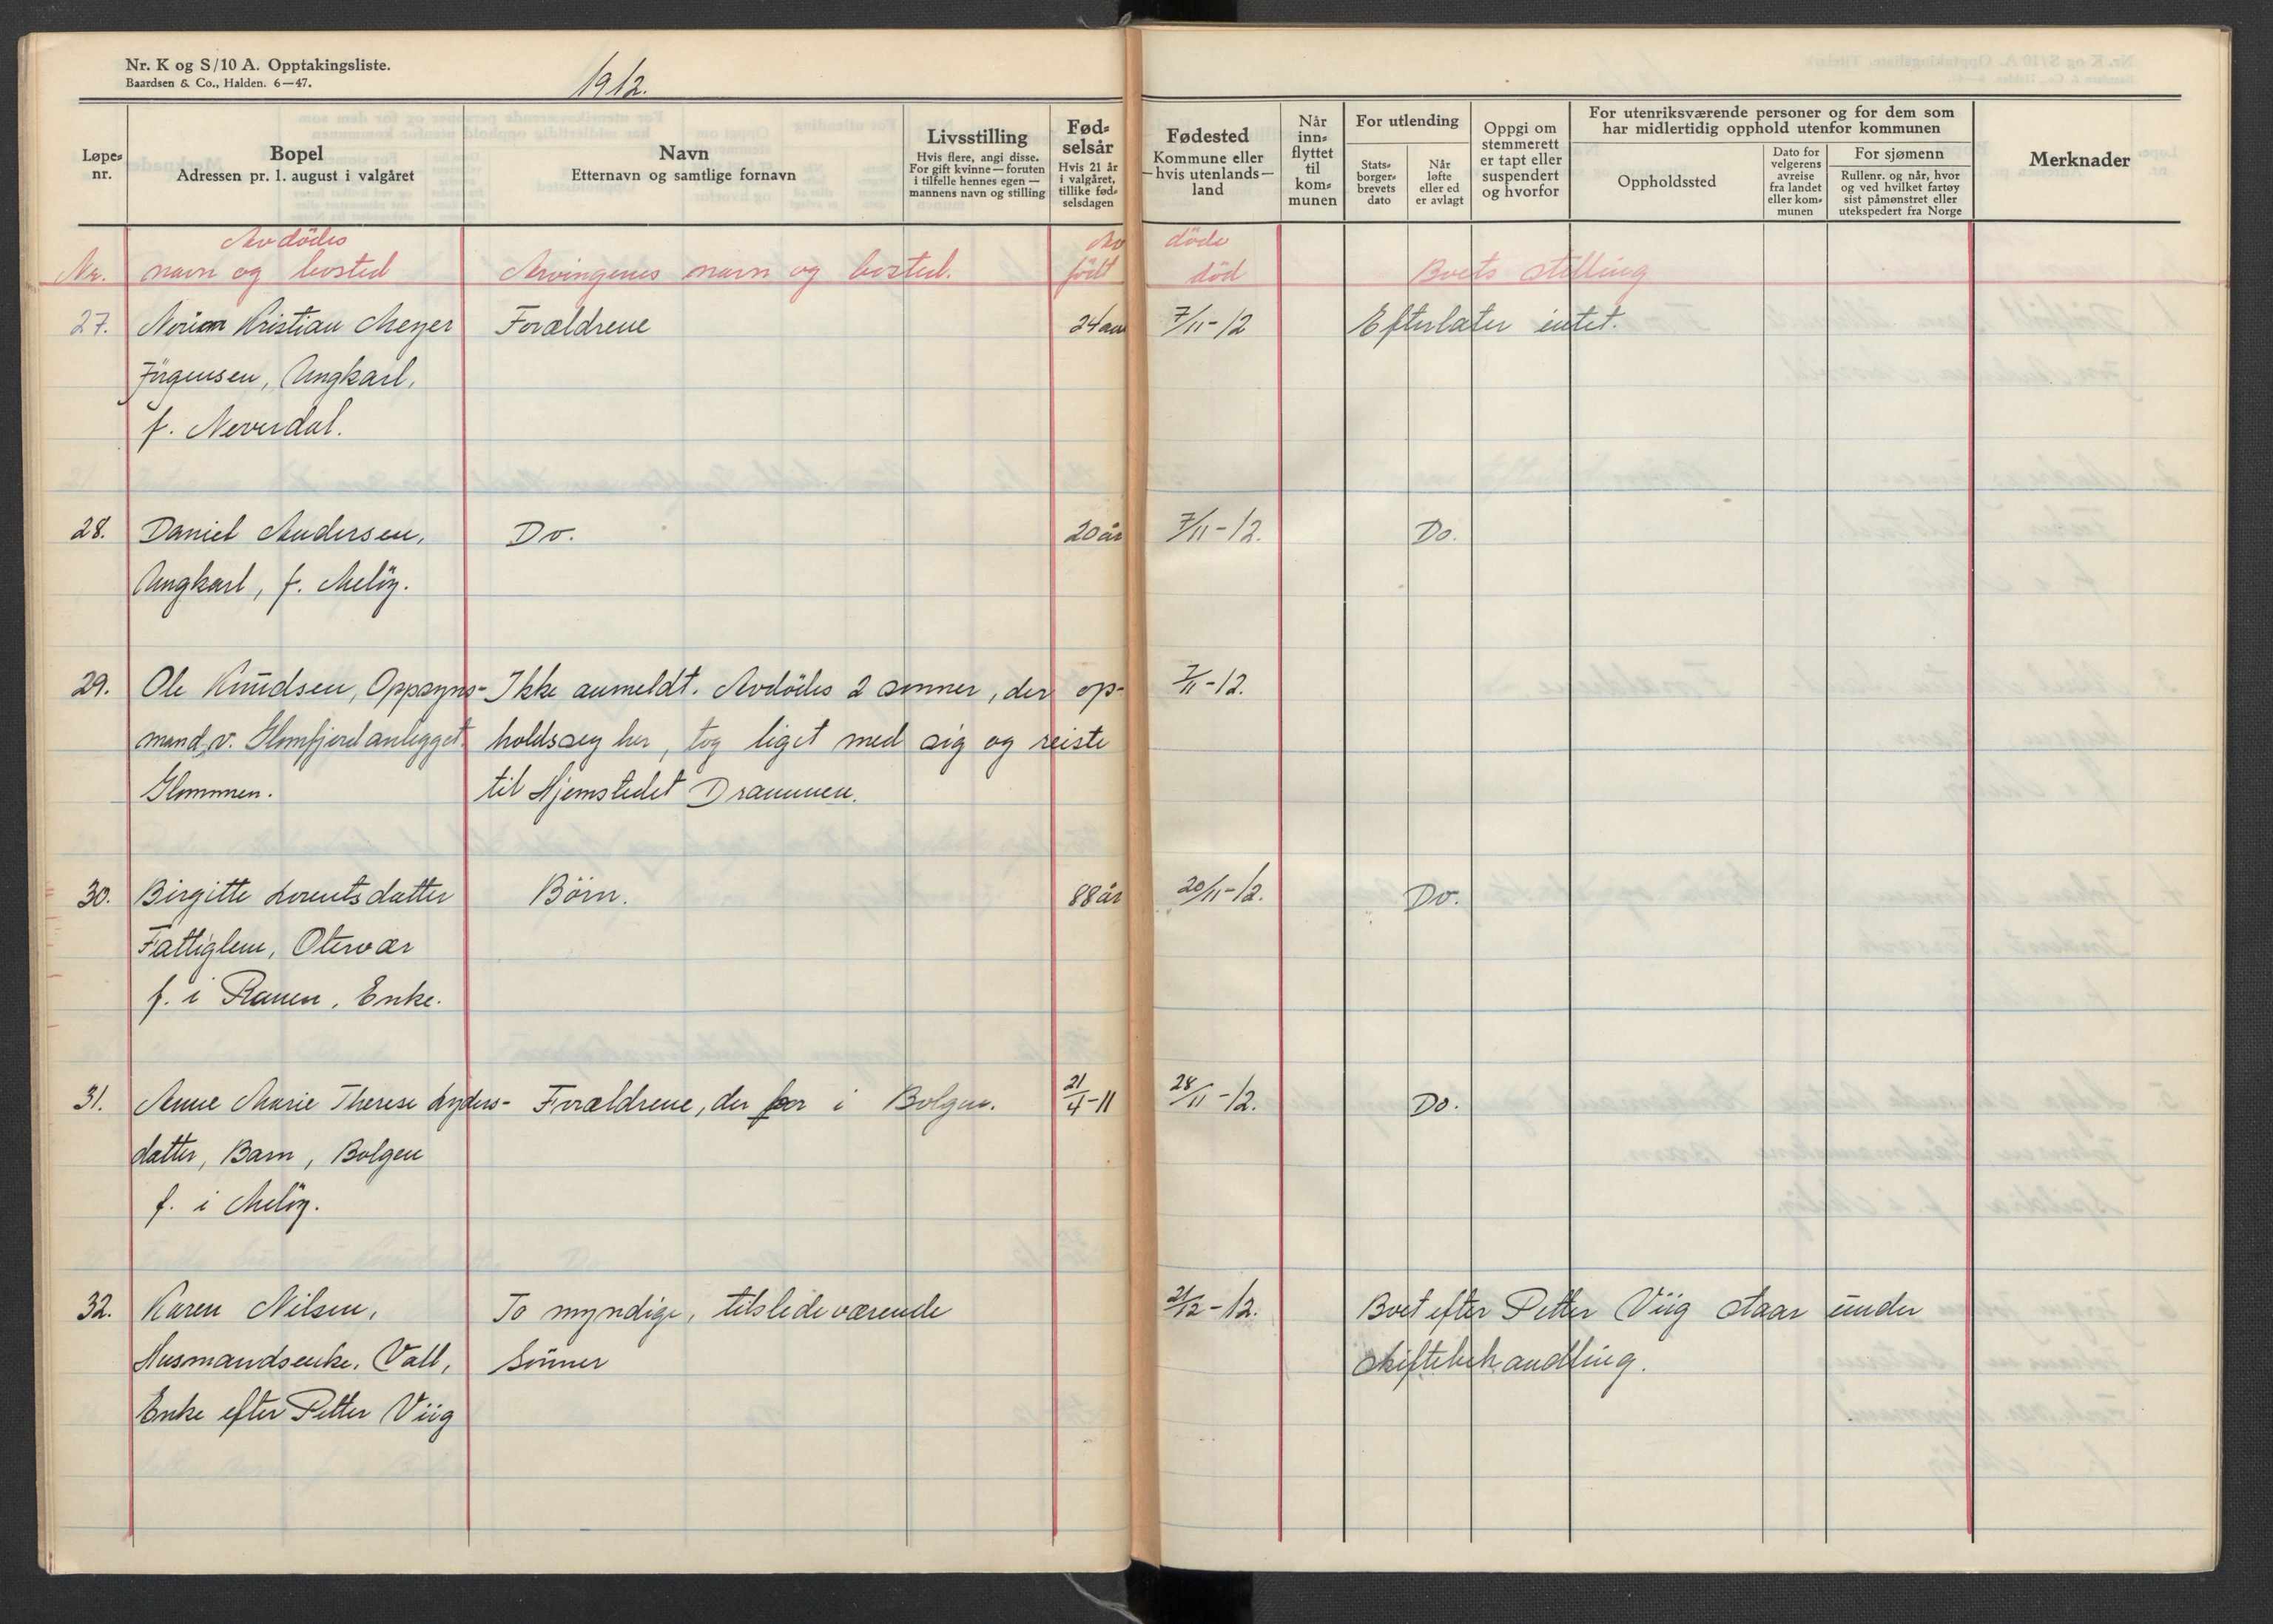 Nr. K og S/10 A. Opptakingsliste.
Baardsen & Co., Halden. 6—47.
1912.
Løpe-
nr.
Bopel
Adressen pr. 1. august i valgåret
Navn
Etternavn og samtlige fornavn
Livsstilling
Hvis flere, angi disse.
For gift kvinne — foruten
i tilfelle hennes egen —
mannens navn og stilling
Fød-
selsår
Hvis 21 år
i valgåret,
tillike fød-
selsdagen
Fødested
Kommune eller
— hvis utenlands —
land
Når
inn-
flyttet
til
kom-
munen
For utlending
Stats-
borger-
brevets
dato
Når
løfte
eller ed
er avlagt
Oppgi om
stemmerett
er tapt eller
suspendert
og hvorfor
For utenriksværende personer og for dem som
har midlertidig opphold utenfor kommunen
Oppholdssted
Dato for
velgerens
avreise
fra landet
eller kom-
munen
For sjømenn
Rullenr. og når, hvor
og ved hvilket fartøy
sist påmønstret eller
utekspedert fra Norge
Merknader
Avdödes Av döde
Nr. navn og bosted Arvingenes navn og bosted. født död Boets stilling
27. Kristian Meyer Forældrene 24 aar 7/11-12 Efterlater intet.
Jörgensen, Ungkarl,
f. Neverdal.
28. Daniel Andersen, Do. 20 år 7/11-12. Do.
Ungkarl, f. Melöy.
29. Ole Knudsen, Oppsyns- Ikke anmeldt. Avdödes 2 sønner, der op- 7/11-12.
mand, v. Glomfjord anlegget. holdt seg her, tog liget med sig og reiste
Glommen. til Hjemstedet Drammen.
30. Birgitte Lorentsdatter Börn. 88 år 20/11-12. Do.
Fattiglem, Otervær
f. i Ranen, Enke.
31. Anne Marie Therese Lyders- Forældrene, der bor i Bolgen. 21/4-11 28/11-12. Do.
datter, Barn, Bolgen
f. i Melöy.
32. Karen Nilsen, To myndige, tilstedeværende 21/12-12. Boet efter Petter Viig staar under
Husmandsenke, Vall, Sönner skiftebehandling.
Enke efter Petter Viig